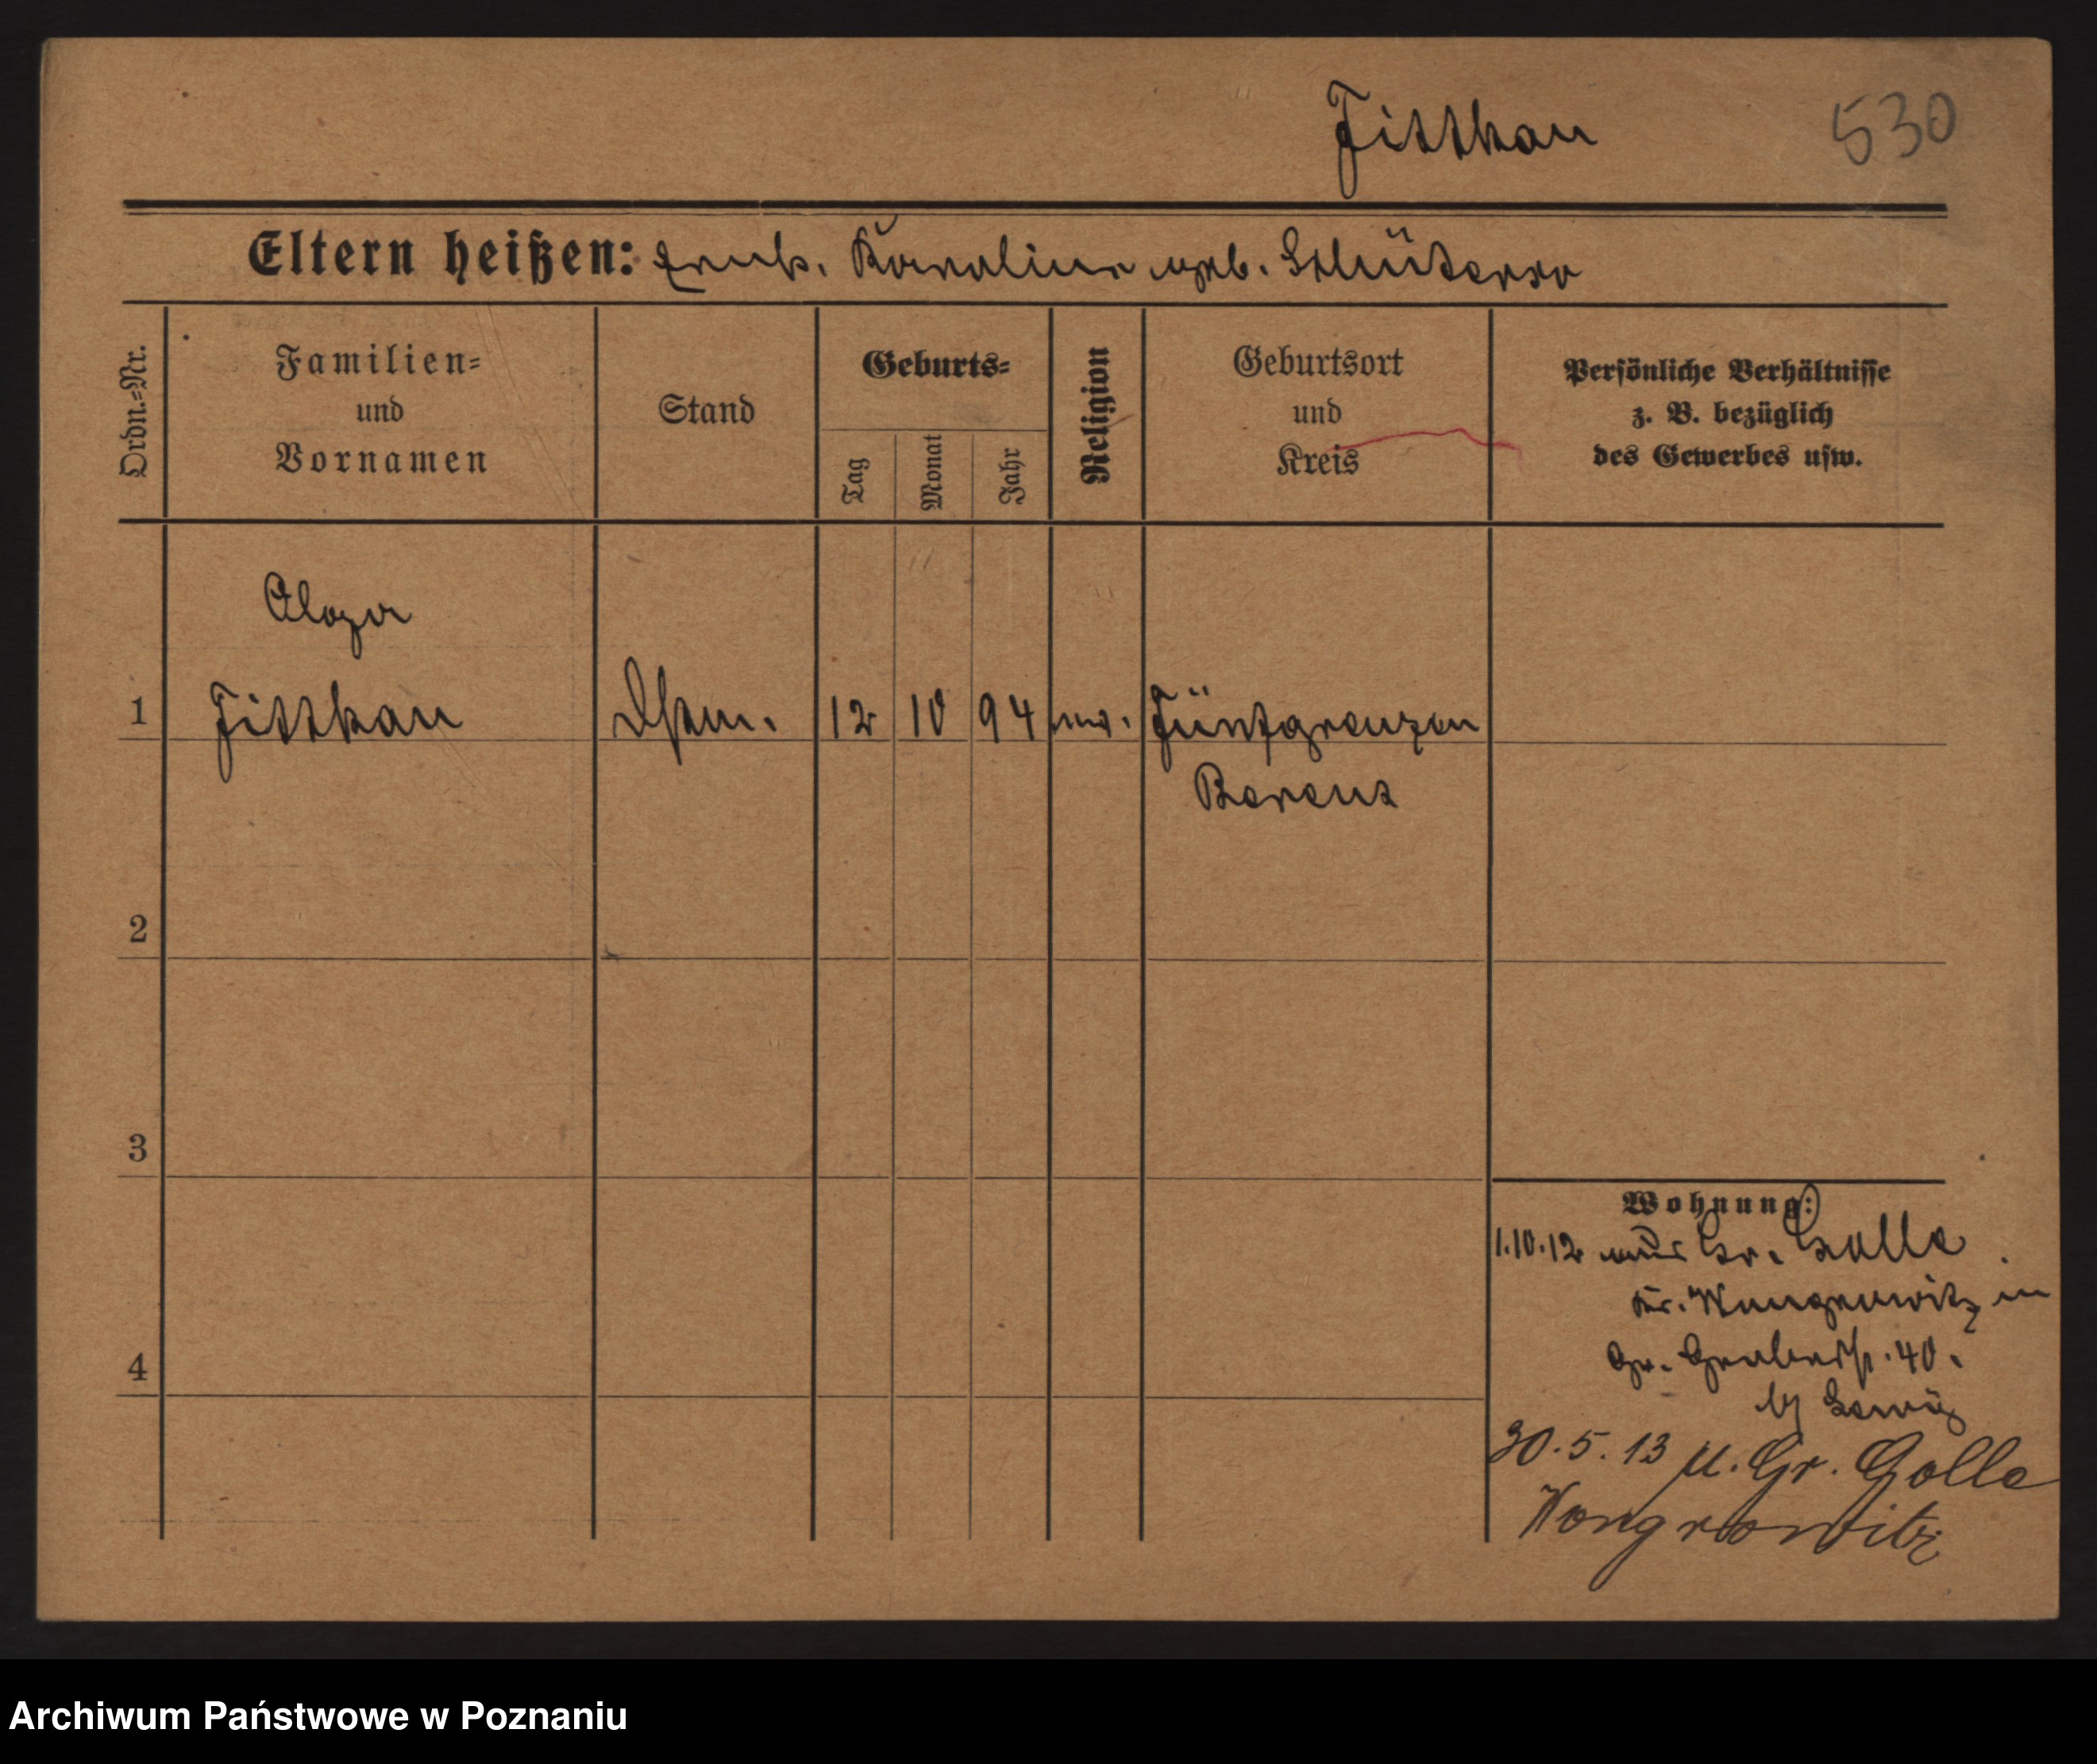 Fitthau
530
Eltern heißen: Karoline geb.
Ordn.=Nr.
Familien=
und
Vornamen
Stand
Geburts=
Tag
Monat
Jahr
Religion
Geburtsort
und
Kreis
Persönliche Verhältnisse
z. B. bezüglich
des Gewerbes usw.
1
Fitthau
12 10 94
Fünfgrenzen
Berent
2
3
4
Wohnung:
1.10.12 aus Gr. Golle
Kr. Wongrowitz in
Gr. 40.
30.5.13 Gr. Golle
Wongrowitz
Archiwum Państwowe w Poznaniu